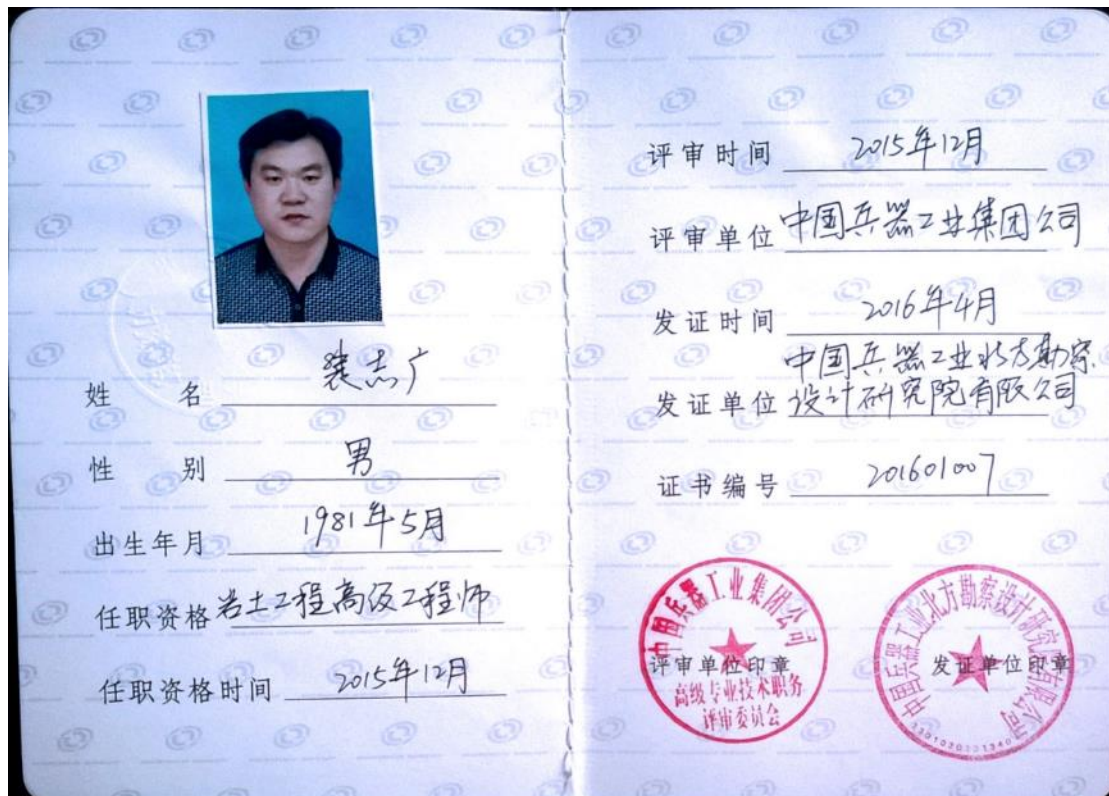 姓 名 裴志广
性 别 男
出生年月 1981年5月
任职资格 岩土工程高级工程师
任职资格时间 2015年12月
评审时间 2015年12月
评审单位 中国兵器工业集团公司
发证时间 2016年4月
中国兵器工业北方勘察
发证单位 设计研究院有限公司
证书编号 201601007
中国兵器工业集团公司
评审单位印章
高级专业技术职务
评审委员会
中国兵器工业北方勘察设计研究院有限公司
发证单位印章